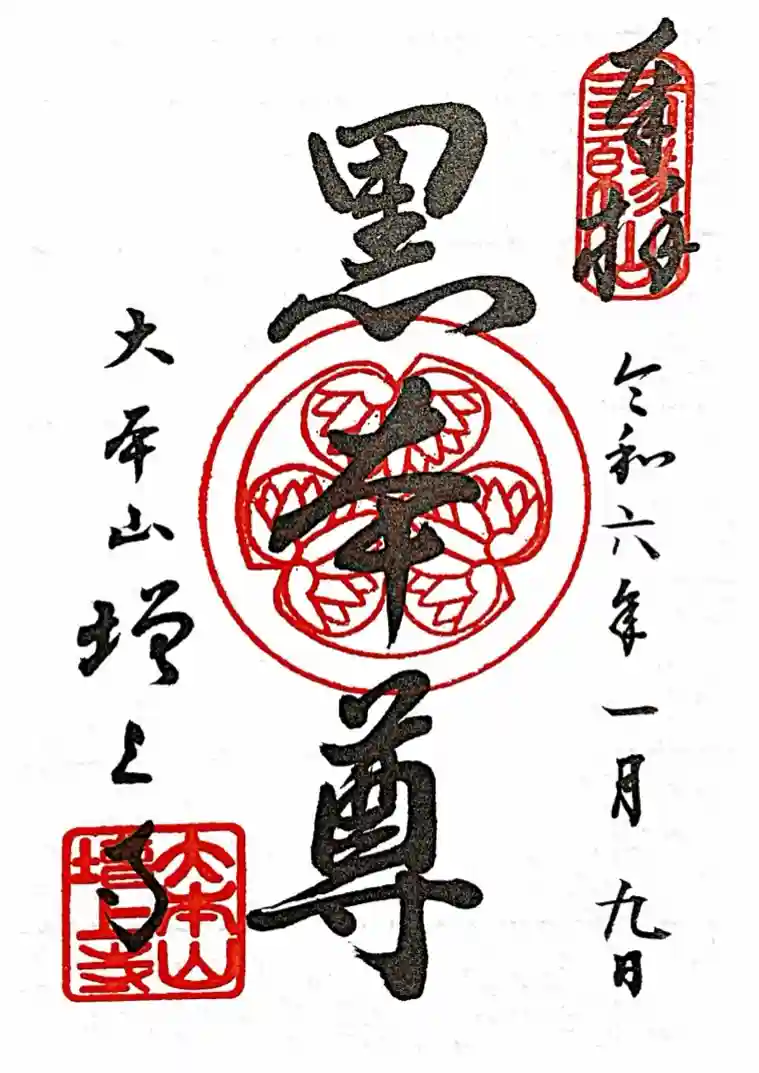 奉拝
令和六年一月九日
黒本尊
大本山増上寺
大本山
増上寺